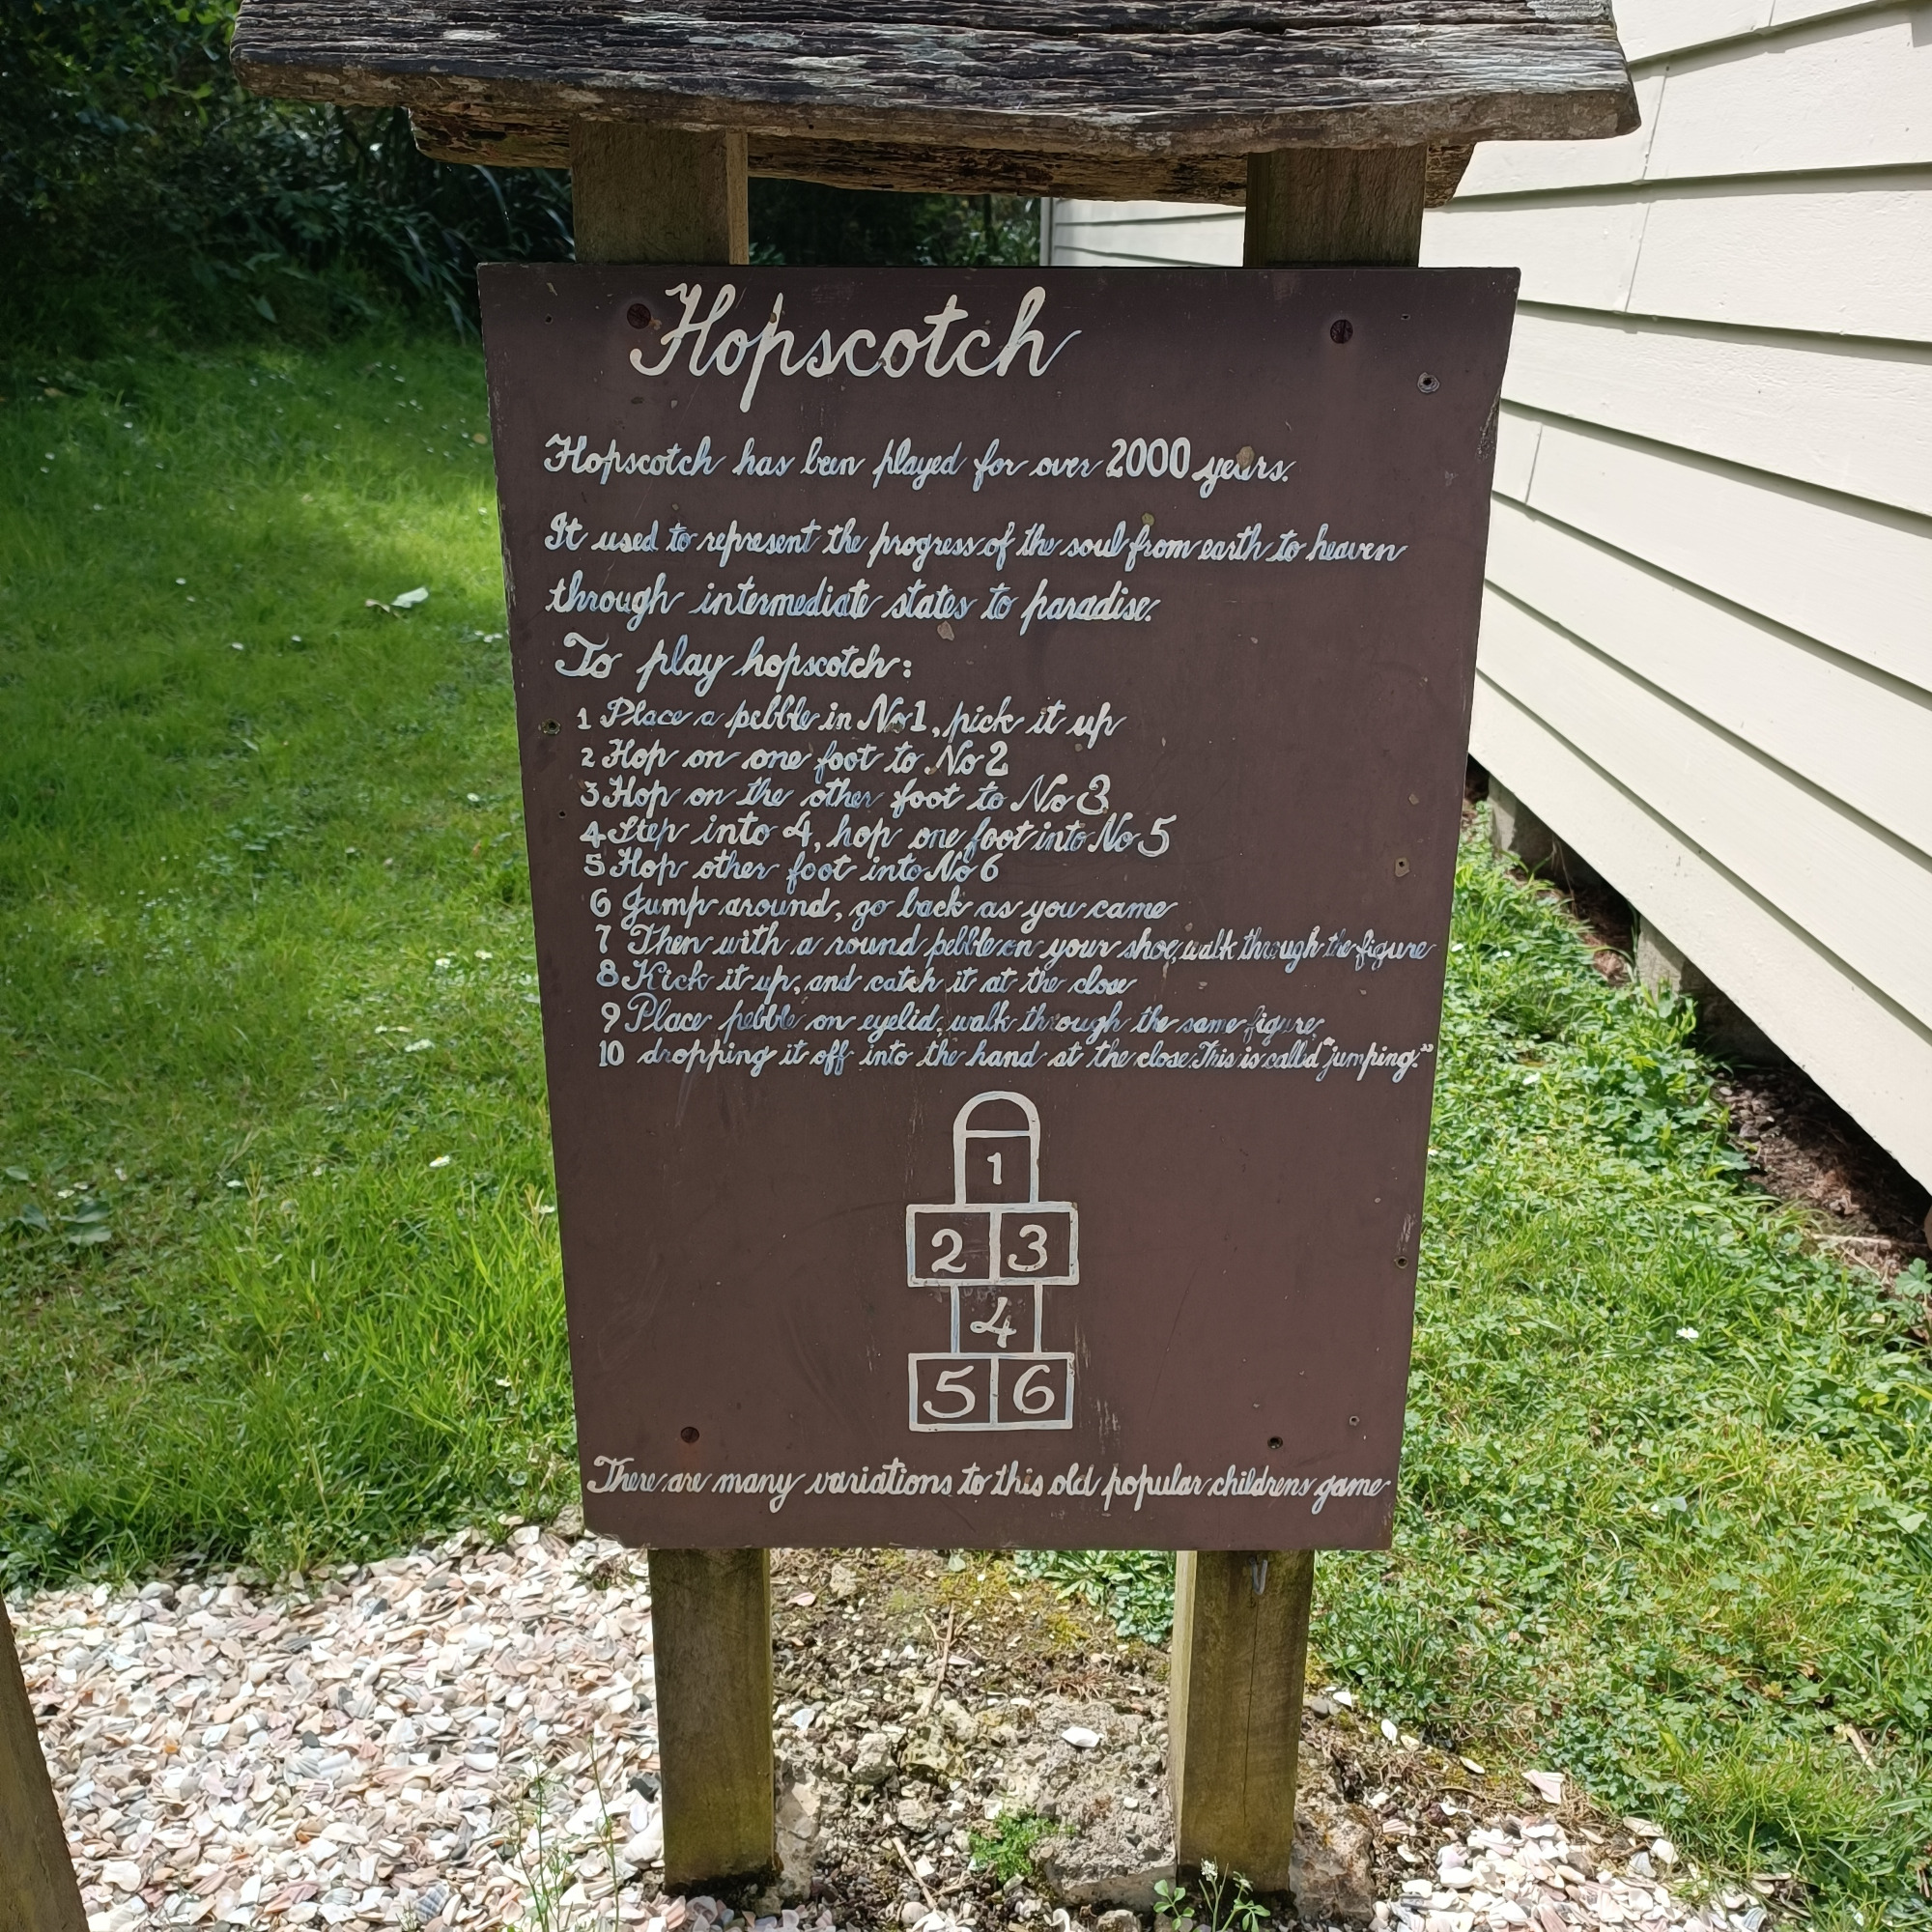 Hopscotch
Hopscotch has been played for over 2000 years.
It used to represent the progress of the soul from earth to heaven
through intermediate states to paradise.
To play hopscotch:
1 Place a pebble in No 1, pick it up
2 Hop on one foot to No 2
3 Hop on the other foot to No 3
4 Step into 4, hop one foot into No 5
5 Hop other foot into No 6
6 Jump around, go back as you came
7 Then with a round pebble on your shoe, walk through the figure
8 Kick it up, and catch it at the close
9 Place pebble on eyelid, walk through the same figure,
10 dropping it off into the hand at the close. This is called "jumping."
1
2 3
4
5 6
There are many variations to this old popular childrens game